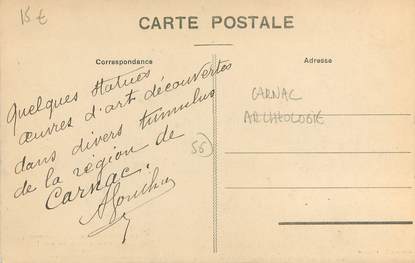 15 €
CARTE POSTALE
Correspondance
Adresse
Quelques statues
œuvres d'art découvertes
dans divers tumulus
de la région de
Carnac.
56
CARNAC
ARCHEOLOGIE